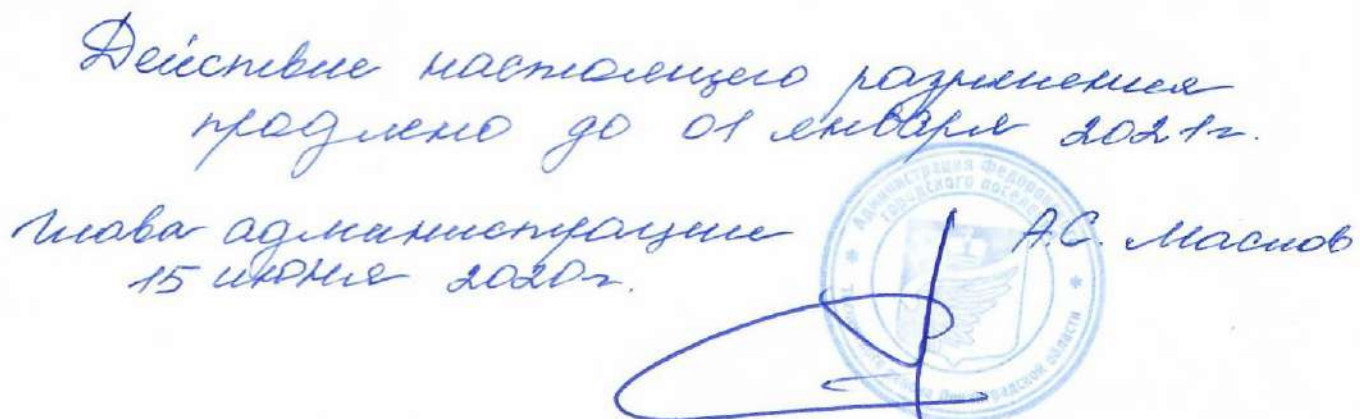 Действие настоящего разрешения
продлено до 01 января 2021г.
Глава администрации
А.С. Маслов
15 июня 2020г.
Администрация Федоровского
городского поселения
Тосненского района Ленинградской области